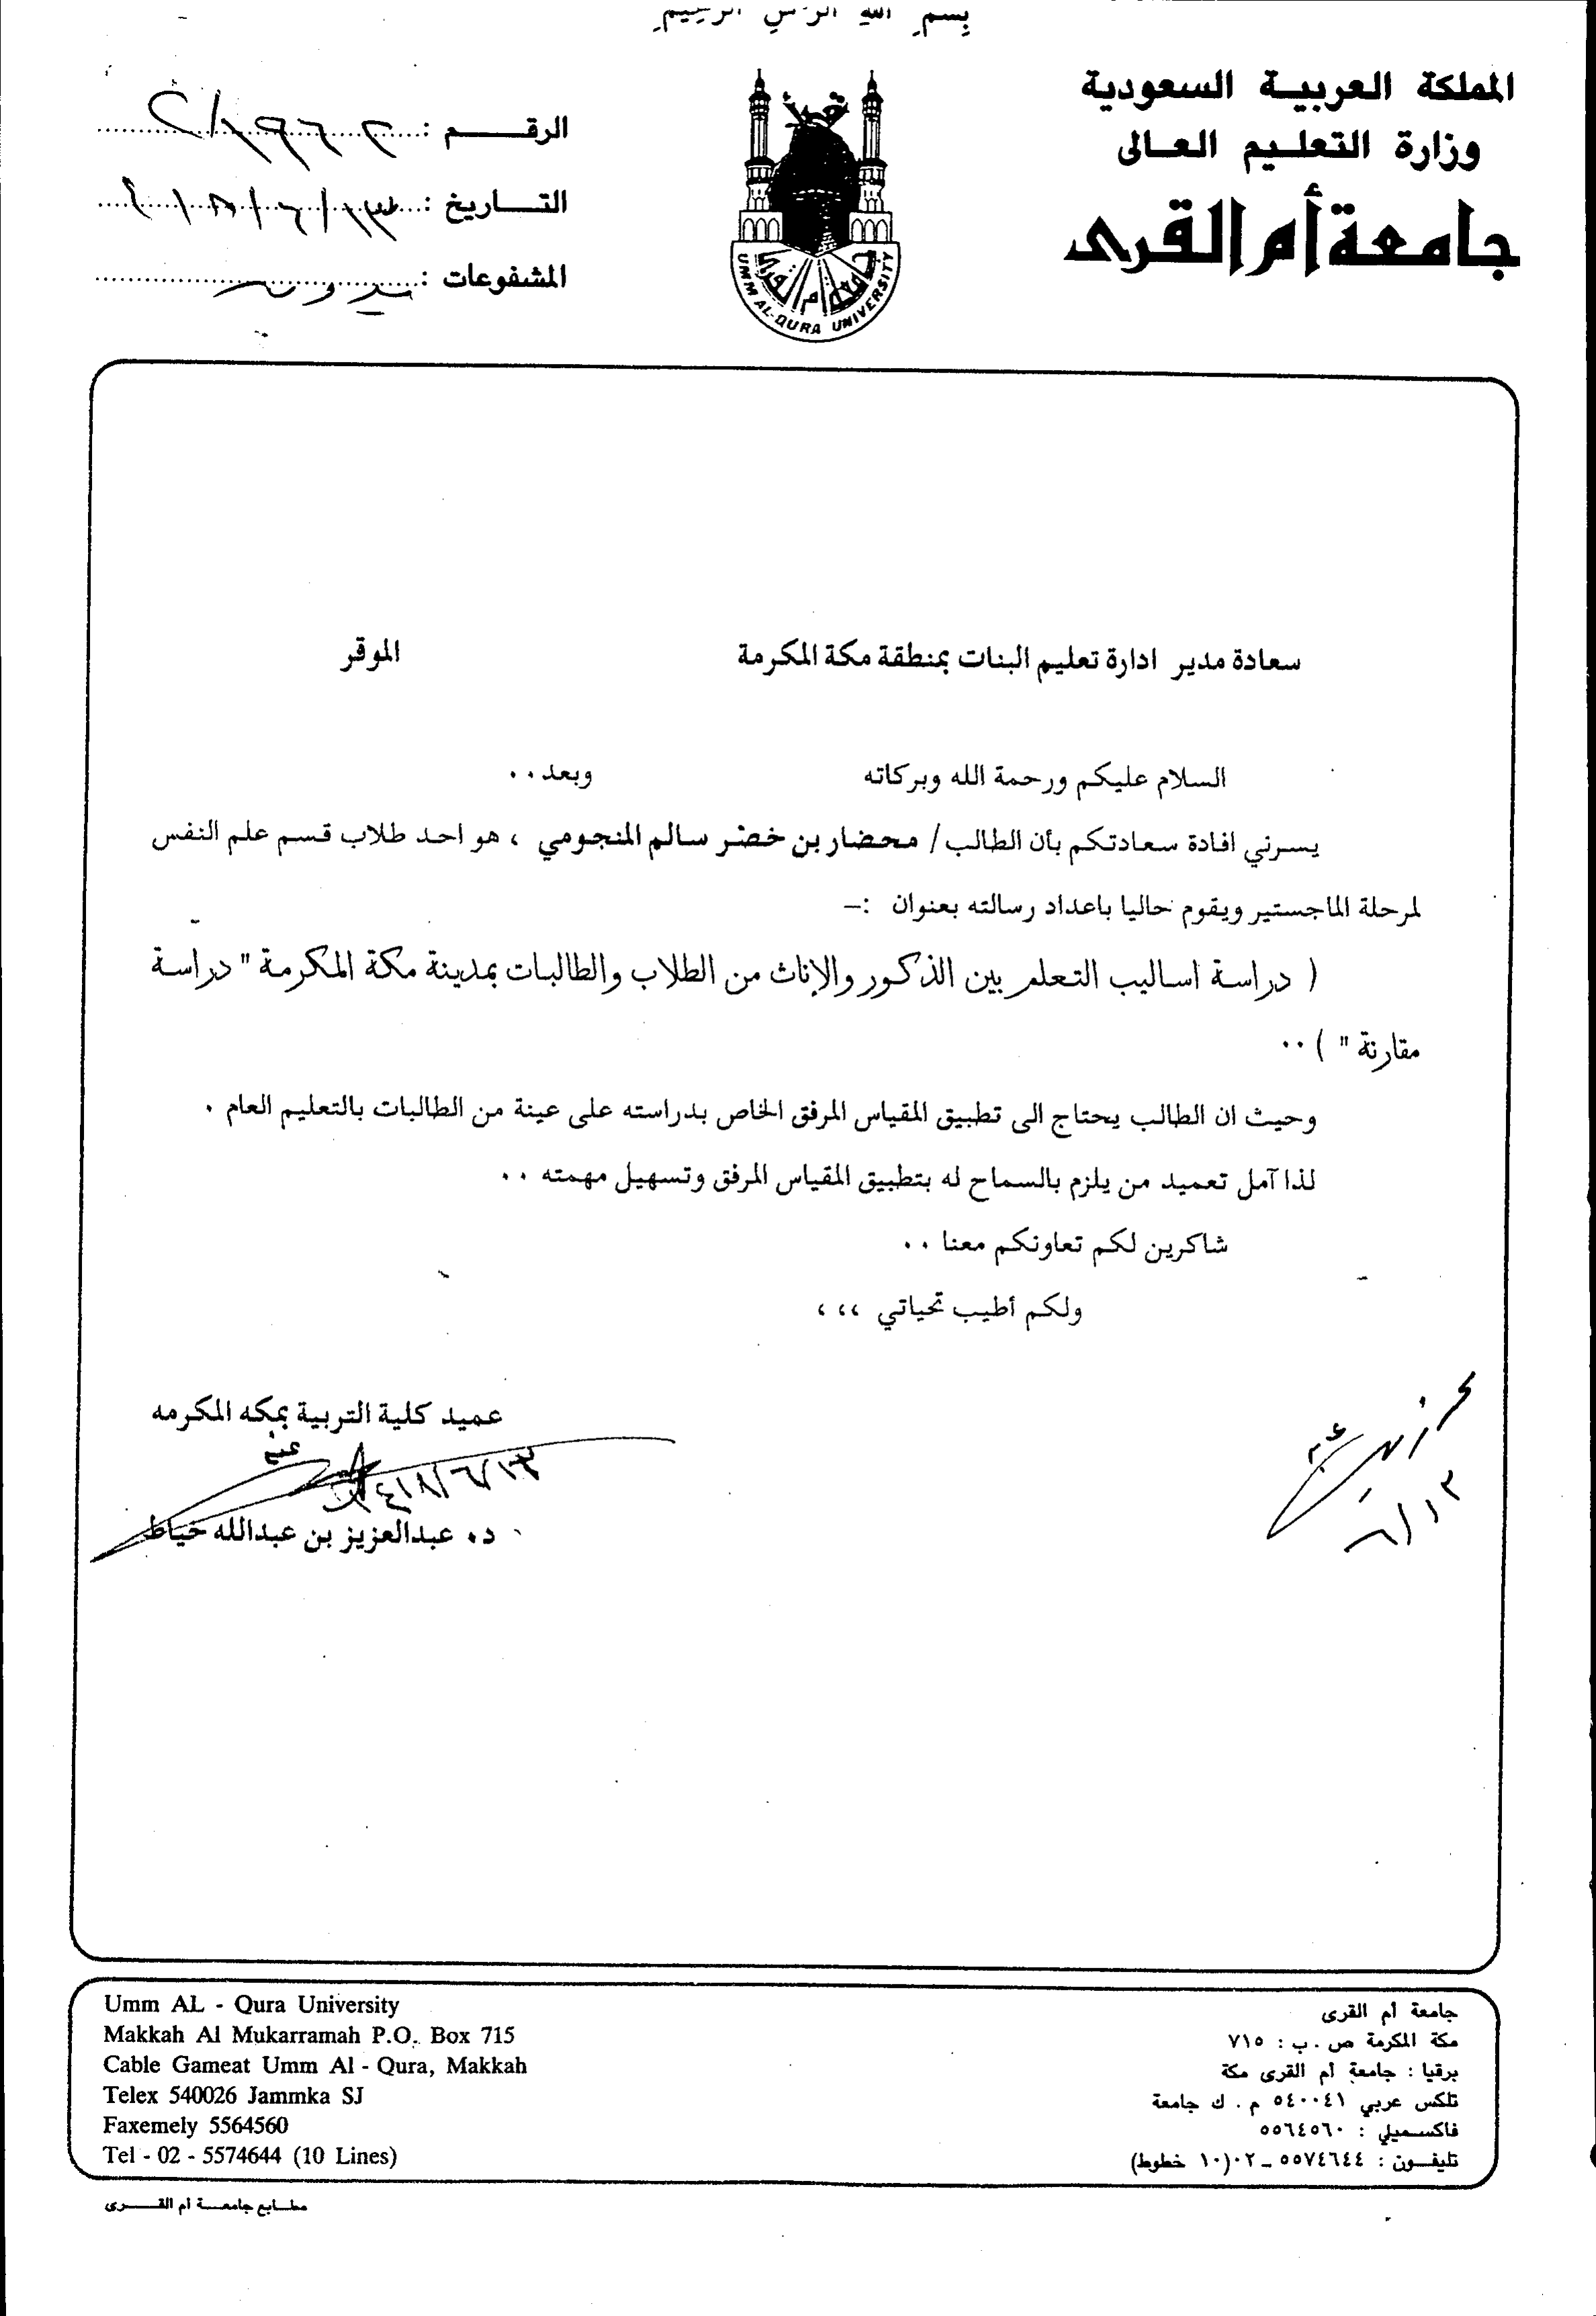 بسم الله الرحمن الرحيم
المملكة العربية السعودية
وزارة التعليم العالى
جامعة أم القرى
UMM AL-QURA UNIVERSITY
الرقم :
التاريخ : ١٣/٦/١٨
المشفوعات : بدون
سعادة مدير ادارة تعليم البنات بمنطقة مكة المكرمة الموقر
السلام عليكم ورحمة الله وبركاته وبعد ٠٠
يسرني افادة سعادتكم بأن الطالب/ محضار بن خضر سالم المنجومي ، هو احد طلاب قسم علم النفس
لمرحلة الماجستير ويقوم حاليا باعداد رسالته بعنوان :–
( دراسة اساليب التعلم بين الذكور والإناث من الطلاب والطالبات بمدينة مكة المكرمة " دراسة
مقارنة " ) ٠٠
وحيث ان الطالب يحتاج الى تطبيق المقياس المرفق الخاص بدراسته على عينة من الطالبات بالتعليم العام ٠
لذا آمل تعميد من يلزم بالسماح له بتطبيق المقياس المرفق وتسهيل مهمته ٠٠
شاكرين لكم تعاونكم معنا ٠٠
ولكم أطيب تحياتي ،،،
عميد كلية التربية بمكه المكرمه
١٤١٨/٦/١٣
د. عبدالعزيز بن عبدالله خياط
٦/١٣
Umm AL - Qura University
Makkah Al Mukarramah P.O. Box 715
Cable Gameat Umm Al - Qura, Makkah
Telex 540026 Jammka SJ
Faxemely 5564560
Tel - 02 - 5574644 (10 Lines)
جامعة أم القرى
مكة المكرمة ص . ب : ٧١٥
برقيا : جامعة أم القرى مكة
تلكس عربي ٥٤٠٠٤١ م . ك جامعة
فاكسميلي : ٥٥٦٤٥٦٠
تليفون : ٥٥٧٤٦٤٤ – ٠٢ (١٠ خطوط)
مطابع جامعة ام القرى